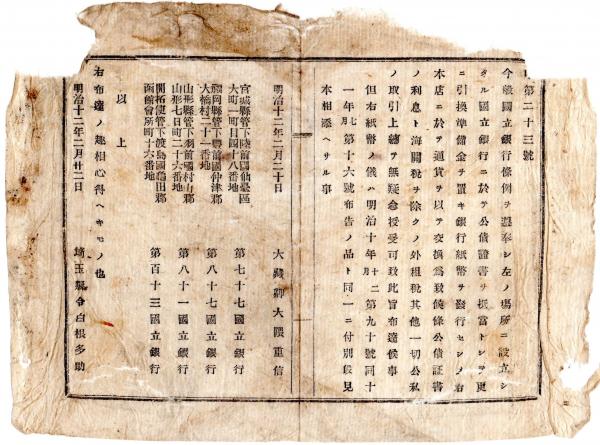 第二十三號
今般國立銀行條例ヲ遵奉シ左ノ場所ニ設立シ
タル國立銀行ニ於テ公債證書ヲ抵當トシテ更
ニ引換準備金ヲ置キ銀行紙幣ヲ發行セシメ右
本店ニ於テ通貨ヲ以テ交換為致候條公債証書
ノ利息ト海關税ヲ除クノ外租税其他一切公私
ノ取引上總テ無疑念授受可致此旨布達候事
但右紙幣ノ儀ハ明治十年十二月第九十號同十
一年七月第十六號布告ノ品ト同一ニ付別段見
本相添ヘサル事
明治十二年二月二十日
大藏卿大隈重信
宮城縣管下陸前國仙臺區
大町一町目四十八番地
第七十七國立銀行
福岡縣管下豐前國仲津郡
大橋村二十一番地
第八十七國立銀行
山形縣管下羽前國村山郡
山形七日町二十六番地
第八十一國立銀行
開拓使管下渡島國龜田郡
函館會所町十六番地
第百十三國立銀行
以上
右布達ノ趣相心得ヘキモノ也
明治十二年二月廿二日
埼玉縣令白根多助